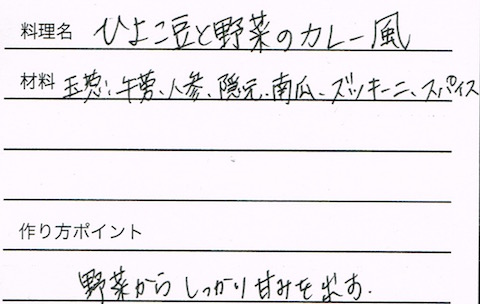 料理名 ひよこ豆と野菜のカレー風
材料 玉葱、牛蒡、人参、隠元、南瓜、ズッキーニ、スパイス
作り方ポイント
野菜からしっかり甘みを出す.